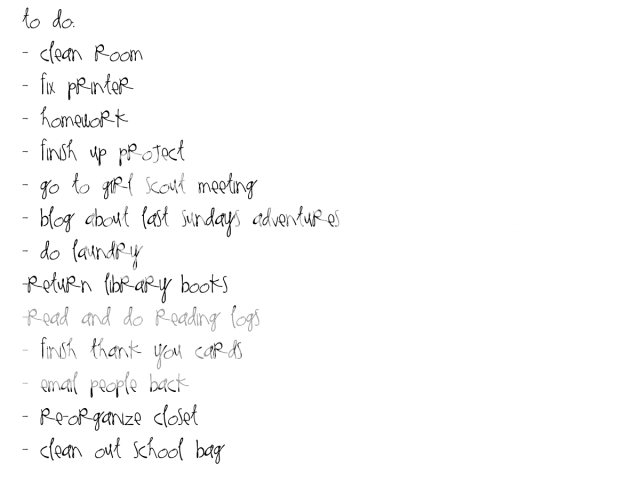 to do:
- clean room
- fix printer
- homework
- finish up project
- go to girl scout meeting
- blog about last sundays adventures
- do laundry
-return library books
-read and do reading logs
- finish thank you cards
- email people back
- re-organize closet
- clean out school bag